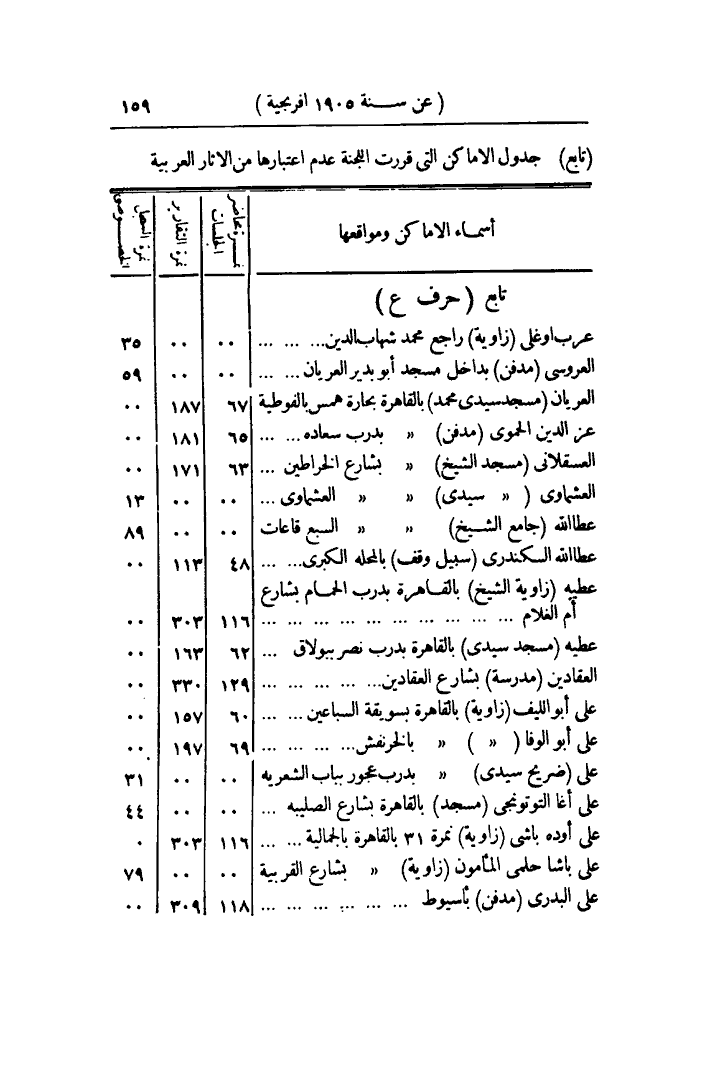 (عن سنة ١٩٠٥ افرنجية) ١٥٩
(تابع) جدول الاماكن التى قررت اللجنة عدم اعتبارها من الاثار العربية
أسماء الاماكن ومواقعها | نمرة محاضر الجلسات | نمرة التقارير | نمرة السجل الخصوصى
تابع (حرف ع)
عرب اوغلى (زاوية) راجع محمد شهاب الدين... ... ... ٠٠ ٠٠ ٣٥
العروسى (مدفن) بداخل مسجد أبو بدير العريان... ... ٠٠ ٠٠ ٥٩
العريان (مسجد سيدى محمد) بالقاهرة بحارة همس بالفوطية ٦٧ ١٨٧ ٠٠
عز الدين الحموى (مدفن) » بدرب سعاده... ... ٦٥ ١٨١ ٠٠
العسقلانى (مسجد الشيخ) » بشارع الخراطين ... ٦٣ ١٧١ ٠٠
العشماوى ( » سيدى) » » العشماوى ... ٠٠ ٠٠ ١٣
عطاالله (جامع الشيخ) » » السبع قاعات ٠٠ ٠٠ ٨٩
عطاالله السكندرى (سبيل وقف) بالمحله الكبرى... ... ٤٨ ١١٣ ٠٠
عطيه (زاوية الشيخ) بالقاهرة بدرب الحمام بشارع
أم الغلام ... ... ... ... ... ... ... ... ... ... ١١٦ ٣٠٣ ٠٠
عطيه (مسجد سيدى) بالقاهرة بدرب نصر ببولاق ... ٦٢ ١٦٣ ٠٠
العقادين (مدرسة) بشارع العقادين... ... ... ... ... ١٢٩ ٣٣٠ ٠٠
على أبو الليف (زاوية) بالقاهرة بسويقة السباعين ... ... ٦٠ ١٥٧ ٠٠
على أبو الوفا ( » ) » بالخرنفش... ... ... ... ٦٩ ١٩٧ ٠٠
على (ضريح سيدى) » بدرب عجور بباب الشعريه ٠٠ ٠٠ ٣١
على أغا التوتونجى (مسجد) بالقاهرة بشارع الصليبه ... ٠٠ ٠٠ ٤٤
على أوده باشى (زاوية) نمرة ٣١ بالقاهرة بالجمالية ... ... ١١٦ ٣٠٣ ٠
على باشا حلمى المأمون (زاوية) » بشارع القربية ٠٠ ٠٠ ٧٩
على البدرى (مدفن) بأسيوط ... ... ... ... ... ... ١١٨ ٣٠٩ ٠٠